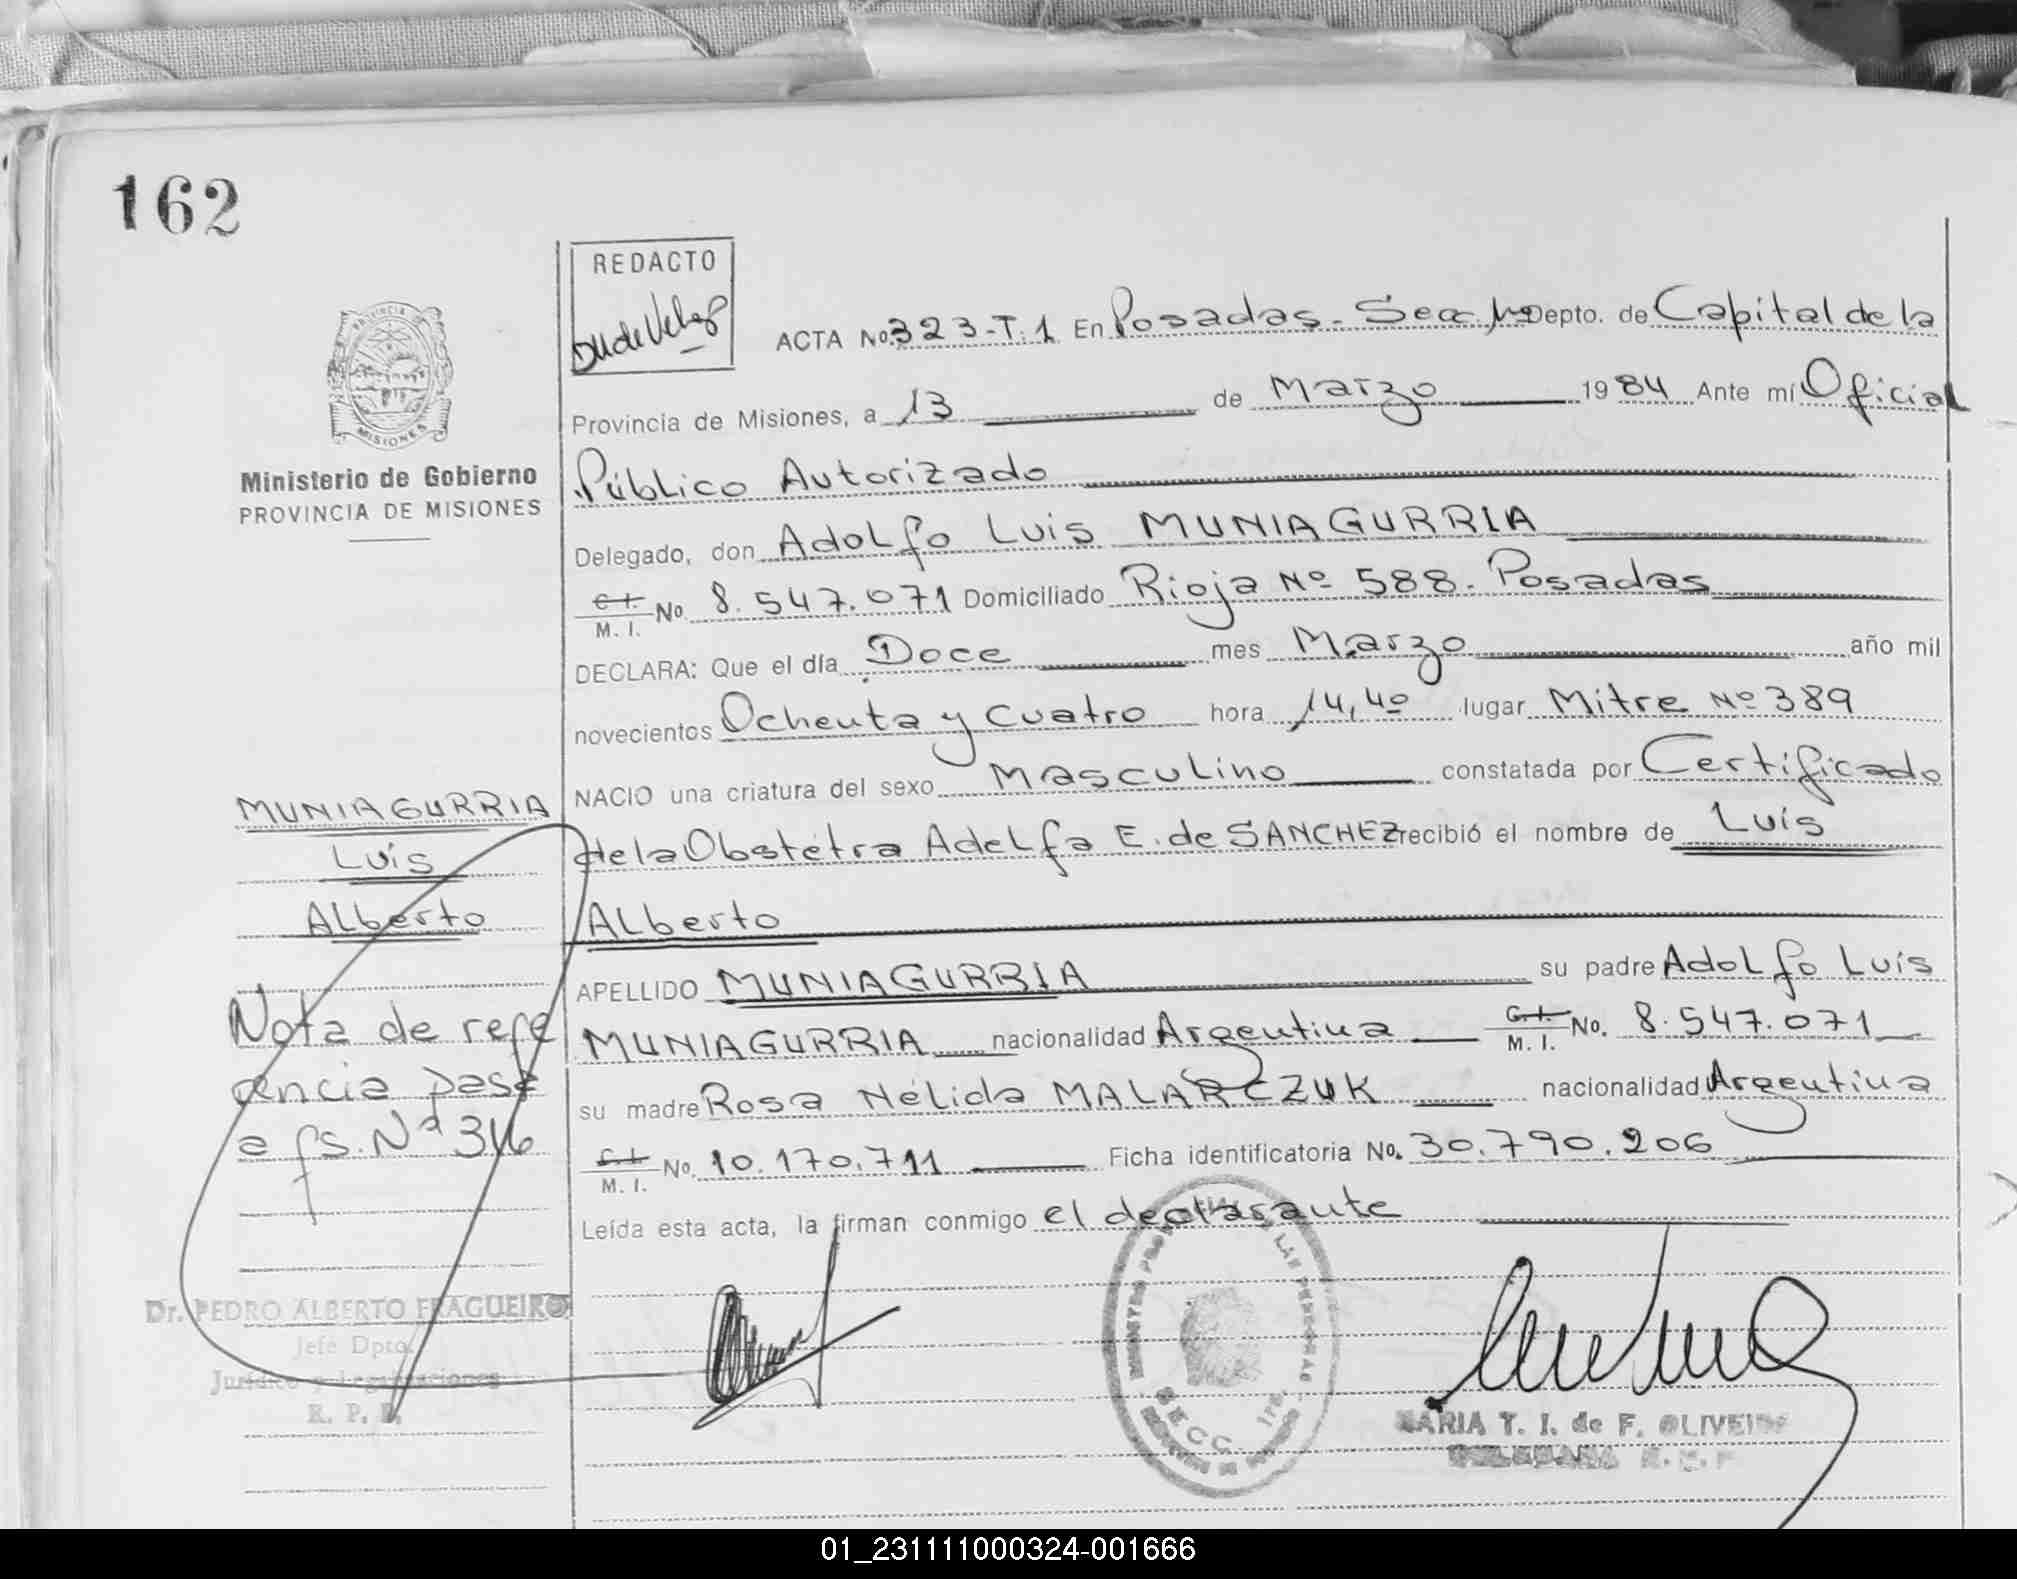 162
REDACTO
ACTA No. 323-T.1 En Posadas - Secc. Depto. de Capital de la
Provincia de Misiones, a 13 de Marzo 1984 Ante mí Oficial
Público Autorizado
Delegado, don Adolfo Luis MUNIAGURRIA
C.I. M. I. No. 8.547.071 Domiciliado Rioja Nº 588. Posadas
DECLARA: Que el día Doce mes Marzo año mil
novecientos Ochenta y Cuatro hora 14,40 lugar Mitre Nº 389
NACIO una criatura del sexo Masculino constatada por Certificado
de la Obstétra Adelfa E. de SANCHEZ recibió el nombre de Luis
Alberto
APELLIDO MUNIAGURRIA su padre Adolfo Luis
MUNIAGURRIA nacionalidad Argentina C.I. M. I. No. 8.547.071
su madre Rosa Nélida MALARCZUK nacionalidad Argentina
C.I. M. I. No. 10.170.711 Ficha identificatoria No. 30.790.206
Leída esta acta, la firman conmigo el declarante
PROVINCIA DE
MISIONES
Ministerio de Gobierno
PROVINCIA DE MISIONES
MUNIAGURRIA
Luis
Alberto
Nota de refe
rencia pasa
a fs. Nº 316
Dr. PEDRO ALBERTO FRAGUEIRO
Jefe Dpto.
Jurídico y Legalizaciones
R. P. P.
SECC. 1ra.
MARIA T. I. de F. OLIVEIRA
01_231111000324-001666